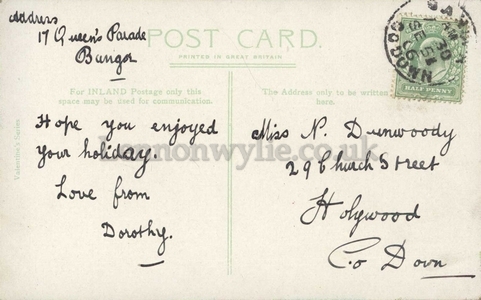 Address
17 Queen's Parade
Bangor
POST CARD.
PRINTED IN GREAT BRITAIN.
For INLAND Postage only this
space may be used for communication.
The Address only to be written
here.
HALF PENNY
Valentine's Series
Hope you enjoyed
your holiday.
Love from
Dorothy.
Miss N. Dunwoody
29 Church Street
Holywood
Co Down